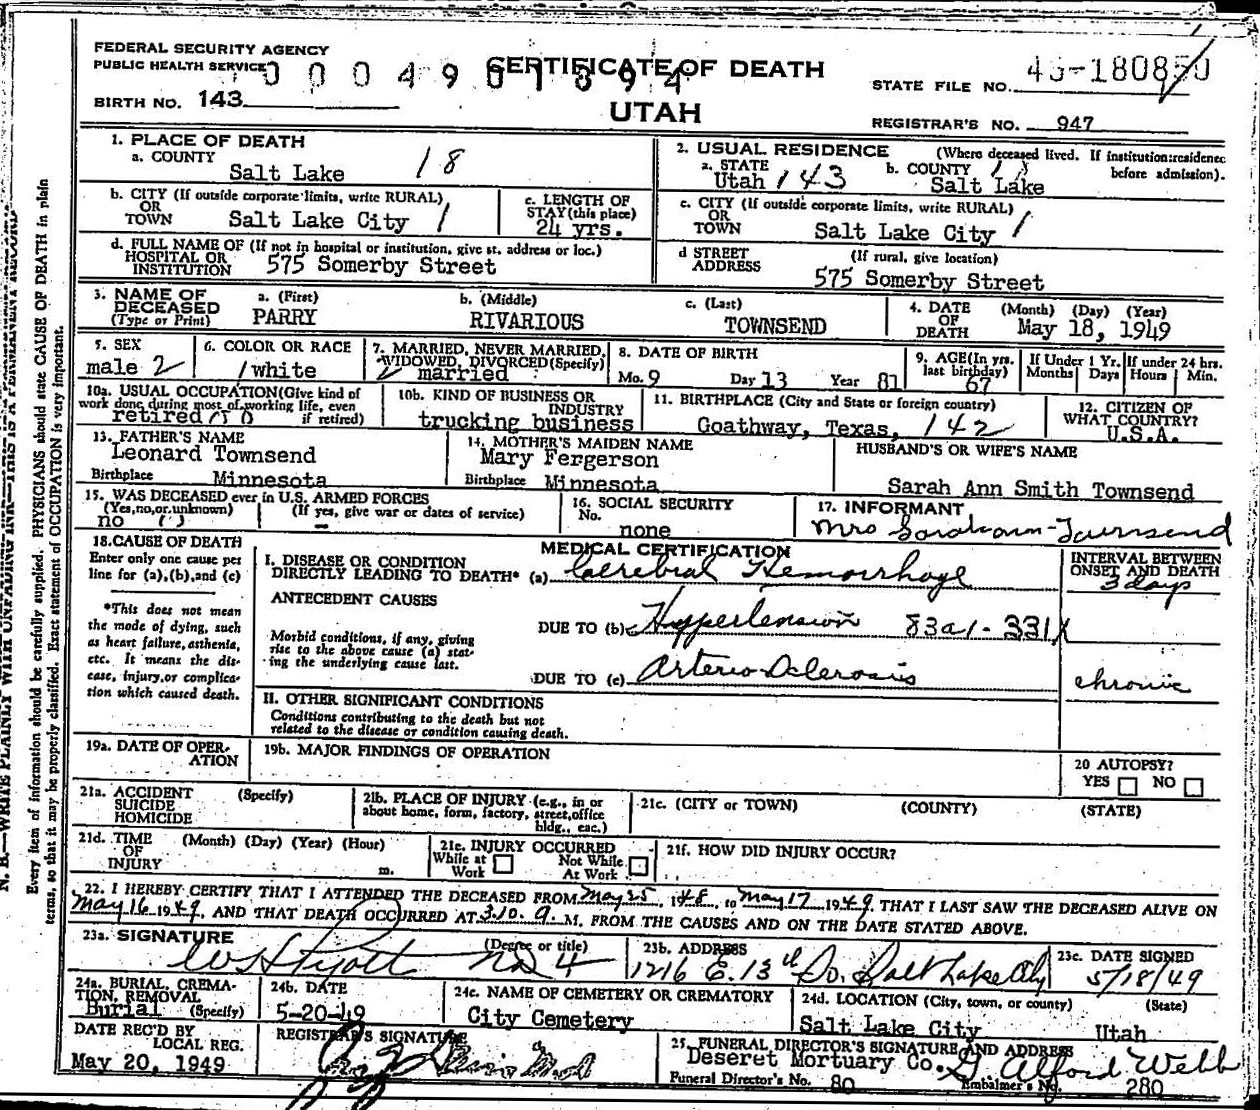 FEDERAL SECURITY AGENCY
PUBLIC HEALTH SERVICE
CERTIFICATE OF DEATH
UTAH
BIRTH NO. 143
STATE FILE NO.
REGISTRAR'S NO. 947
1. PLACE OF DEATH
a. COUNTY
Salt Lake 18
b. CITY (If outside corporate limits, write RURAL)
OR
TOWN Salt Lake City 1
c. LENGTH OF
STAY (this place)
24 yrs.
d. FULL NAME OF (If not in hospital or institution, give st. address or loc.)
HOSPITAL OR
INSTITUTION 575 Somerby Street
2. USUAL RESIDENCE (Where deceased lived. If institution:residence
before admission).
a. STATE
Utah 143
b. COUNTY 18
Salt Lake
c. CITY (If outside corporate limits, write RURAL)
OR
TOWN Salt Lake City 1
d STREET
ADDRESS
(If rural, give location)
575 Somerby Street
3. NAME OF
DECEASED
(Type or Print)
a. (First)
PARRY
b. (Middle)
RIVARIOUS
c. (Last)
TOWNSEND
4. DATE
OF
DEATH
(Month) (Day) (Year)
May 18, 1949
5. SEX
male 2
6. COLOR OR RACE
1 white
7. MARRIED, NEVER MARRIED,
WIDOWED, DIVORCED (Specify)
2 married
8. DATE OF BIRTH
Mo. 9 Day 13 Year 81
9. AGE (In yrs.
last birthday)
67
If Under 1 Yr.
Months Days
If under 24 hrs.
Hours Min.
10a. USUAL OCCUPATION (Give kind of
work done during most of working life, even
if retired)
retired
10b. KIND OF BUSINESS OR
INDUSTRY
trucking business
11. BIRTHPLACE (City and State or foreign country)
Goathway, Texas, 142
12. CITIZEN OF
WHAT COUNTRY?
U.S.A.
13. FATHER'S NAME
Leonard Townsend
Birthplace Minnesota
14. MOTHER'S MAIDEN NAME
Mary Fergerson
Birthplace Minnesota
HUSBAND'S OR WIFE'S NAME
Sarah Ann Smith Townsend
15. WAS DECEASED ever in U.S. ARMED FORCES
(Yes, no, or unknown) (If yes, give war or dates of service)
no –
16. SOCIAL SECURITY
No.
none
17. INFORMANT
Mrs Townsend
18. CAUSE OF DEATH
Enter only one cause per
line for (a), (b), and (c)
*This does not mean
the mode of dying, such
as heart failure, asthenia,
etc. It means the dis-
ease, injury, or complica-
tion which caused death.
MEDICAL CERTIFICATION
I. DISEASE OR CONDITION
DIRECTLY LEADING TO DEATH* (a) Cerebral Hemorrhage
INTERVAL BETWEEN
ONSET AND DEATH
3 days
ANTECEDENT CAUSES
DUE TO (b) Hypertension 83a1 - 331X
Morbid conditions, if any, giving
rise to the above cause (a) stat-
ing the underlying cause last.
DUE TO (c) Arterio-Sclerosis
chronic
II. OTHER SIGNIFICANT CONDITIONS
Conditions contributing to the death but not
related to the disease or condition causing death.
19a. DATE OF OPER-
ATION
19b. MAJOR FINDINGS OF OPERATION
20 AUTOPSY?
YES NO
21a. ACCIDENT
SUICIDE
HOMICIDE
(Specify)
21b. PLACE OF INJURY (e.g., in or
about home, form, factory, street, office
bldg., eac.)
21c. (CITY or TOWN) (COUNTY) (STATE)
21d. TIME
OF
INJURY
(Month) (Day) (Year) (Hour)
m.
21e. INJURY OCCURRED
While at
Work
Not While
At Work
21f. HOW DID INJURY OCCUR?
22. I HEREBY CERTIFY THAT I ATTENDED THE DECEASED FROM May 25, 1948, to May 17 1949, THAT I LAST SAW THE DECEASED ALIVE ON
May 16 1949, AND THAT DEATH OCCURRED AT 3:10 a. M. FROM THE CAUSES AND ON THE DATE STATED ABOVE.
23a. SIGNATURE
(Degree or title)
23b. ADDRESS
1216 E. 13th So. Salt Lake City
23c. DATE SIGNED
5/18/49
24a. BURIAL, CREMA-
TION, REMOVAL
(Specify)
Burial
24b. DATE
5-20-49
24c. NAME OF CEMETERY OR CREMATORY
City Cemetery
24d. LOCATION (City, town, or county) (State)
Salt Lake City Utah
DATE REC'D BY
LOCAL REG.
May 20, 1949
REGISTRAR'S SIGNATURE
25. FUNERAL DIRECTOR'S SIGNATURE AND ADDRESS
Deseret Mortuary Co. Alford Webb
Funeral Director's No. 80 Embalmer's No. 280
N. B.—WRITE PLAINLY WITH UNFADING INK—THIS IS A PERMANENT RECORD
Every item of information should be carefully supplied. PHYSICIANS should state CAUSE OF DEATH in plain
terms, so that it may be properly classified. Exact statement of OCCUPATION is very important.